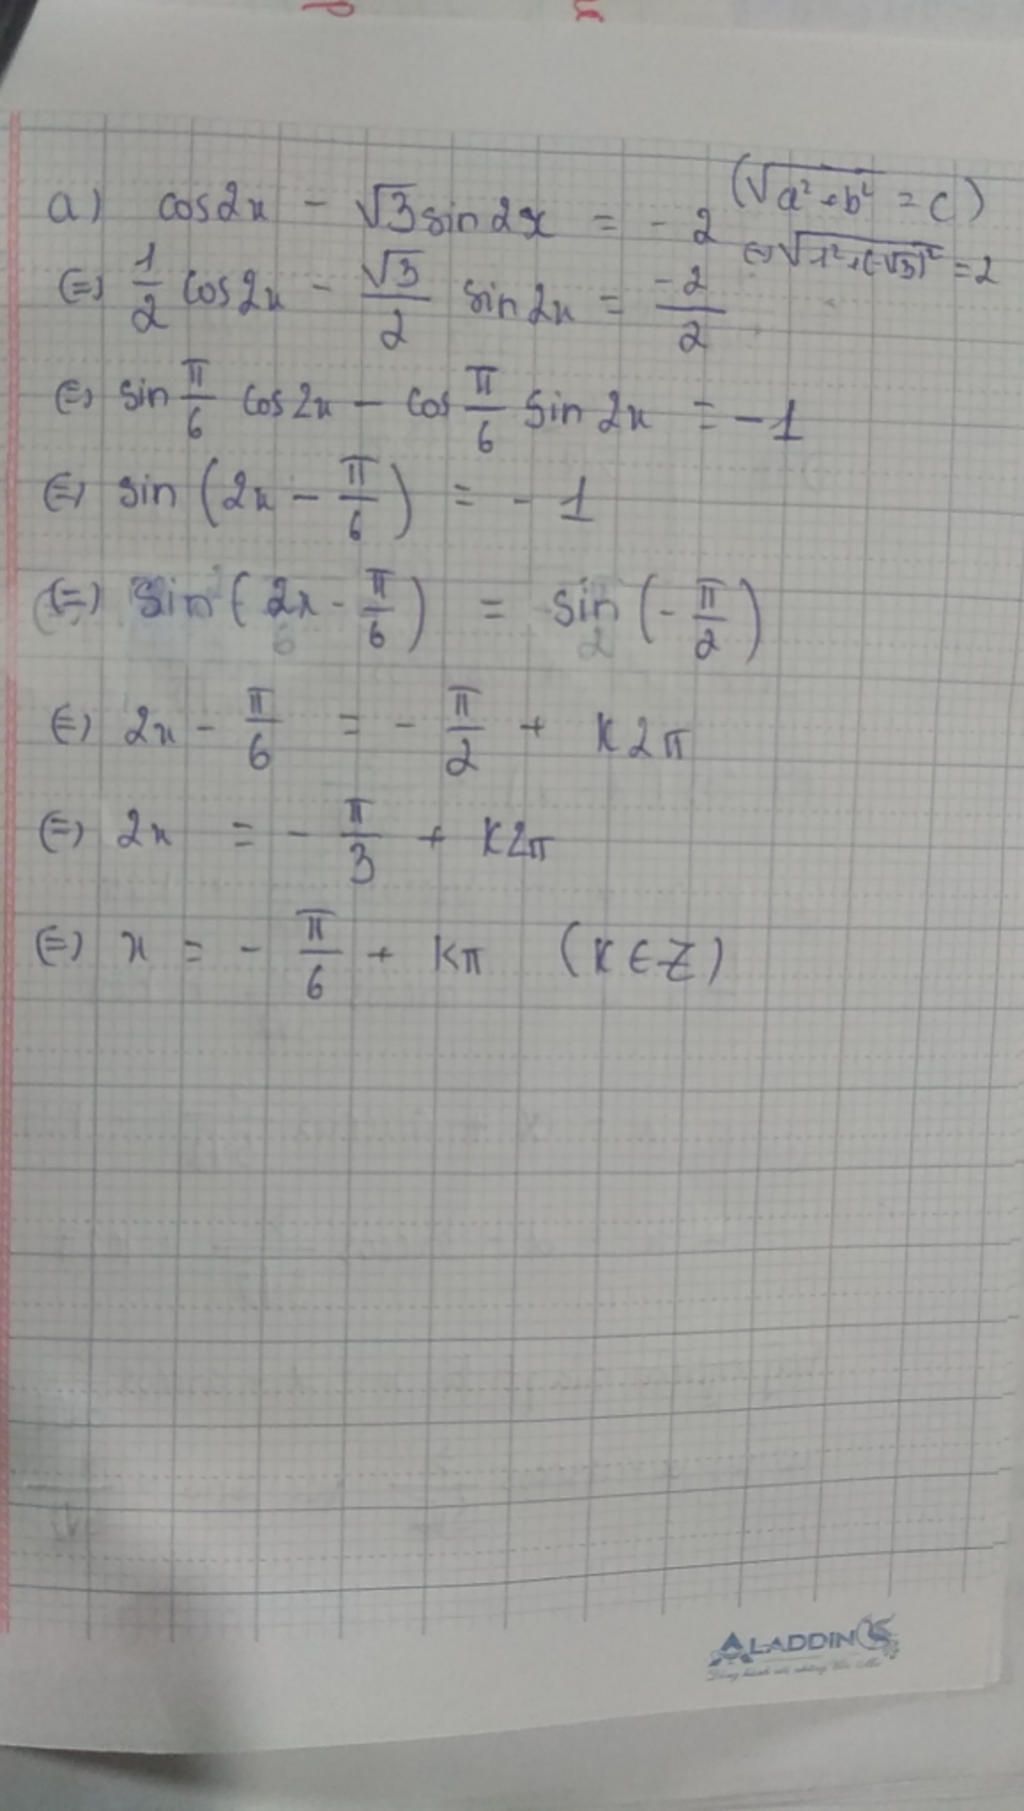 a) cos2x - √3 sin2x = -2 (√a²+b² = c)
⇔ √1²+(-√3)² = 2
(=) 1/2 cos2x - √3/2 sin2x = -2/2
(=) sin π/6 cos2x - cos π/6 sin2x = -1
(=) sin (2x - π/6) = -1
(=) sin (2x - π/6) = sin (-π/2)
(=) 2x - π/6 = -π/2 + k2π
(=) 2x = -π/3 + k2π
(=) x = -π/6 + kπ (k ∈ Z)
ALADDIN